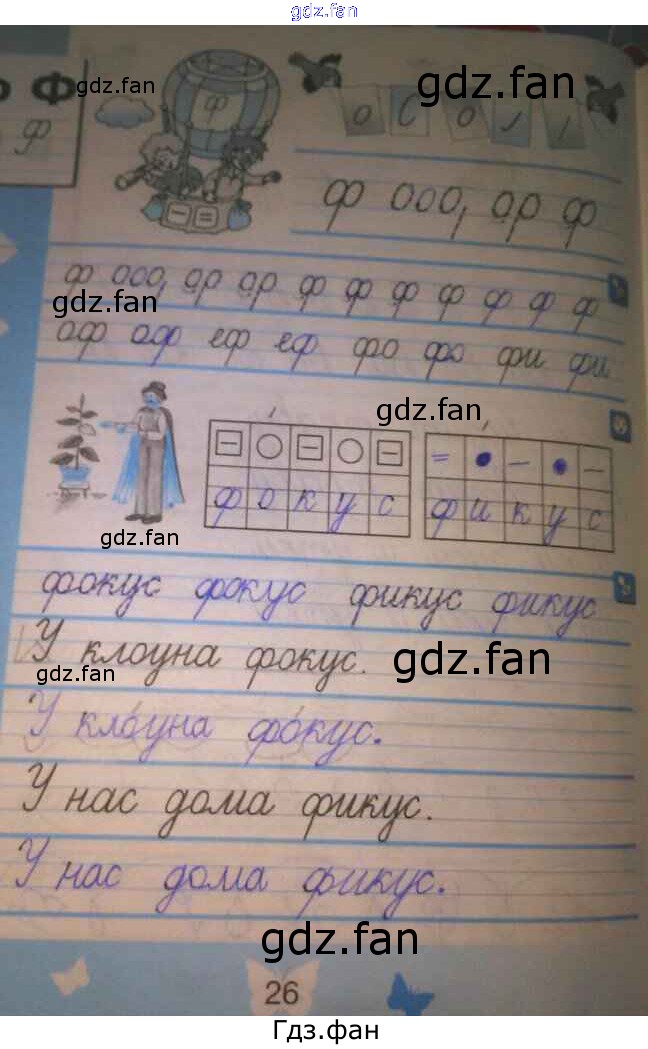 gdz.fan
Ф
gdz.fan
gdz.fan
ф
ф
о с о
ф ооо, ор ф
ф ооо, ор ор ф ф ф ф ф ф ф
gdz.fan
оф оф еф еф фо фо фи фи
gdz.fan
= • – • –
ф о к у с ф и к у с
gdz.fan
фокус фокус фикус фикус
У клоуна фокус.
gdz.fan
gdz.fan
У кло́уна фо́кус.
У нас дома фикус.
У нас дома фикус.
gdz.fan
26
Гдз.фан